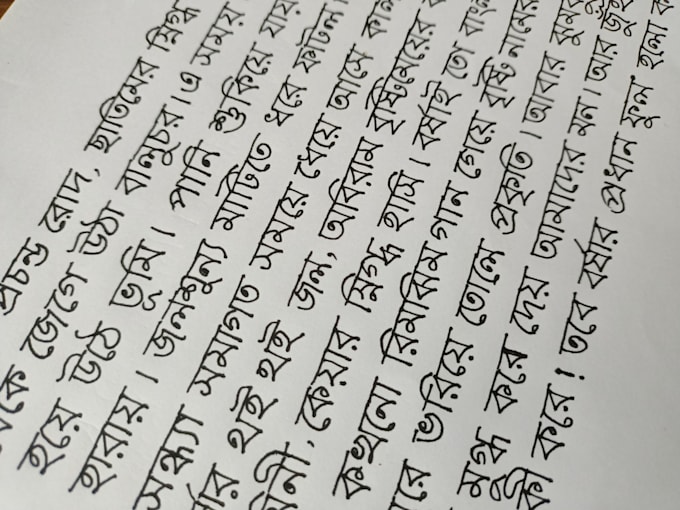 প্রচন্ড রোদ, ছাতিমের স্নিগ্ধ
জেগে উঠা বালুচর। এ সময়
হয়ে উঠে ভূমি। পানি শুকিয়ে যায়
হারায়। জলশূন্য মাটিতে ধরে ফাটল।
সন্ধ্যা সমাগত সময়ে ধেয়ে আসে কাল
থই থই জল, অবিরাম বৃষ্টিমেয়ের
কেয়ার স্নিগ্ধ হাসি। বর্ষাই তো বাংলা
কখনো রিমঝিম গান গেয়ে বৃষ্টি নামের
ভরিয়ে তোলে প্রকৃতি। আবার ঝুমঝু
মুগ্ধ করে দেয় আমাদের মন। আর জুঁই
কী করে! তবে বর্ষার প্রধান ফুল হলো ক